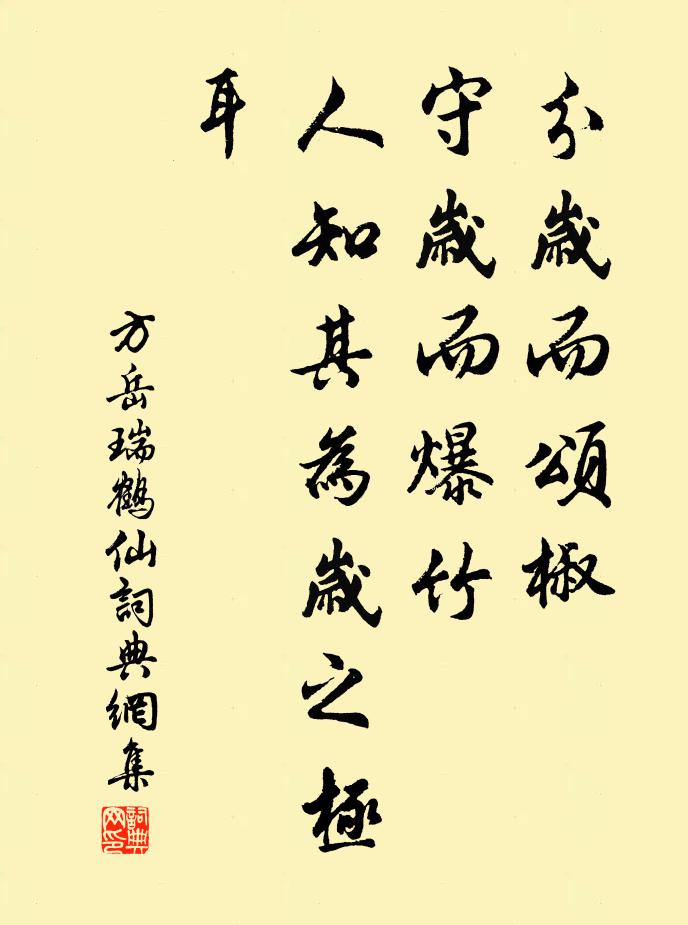 分歲而頌椒
守歲而爆竹
人知其為歲之極
耳
方岳瑞鶴仙詞典網集
詞典网印